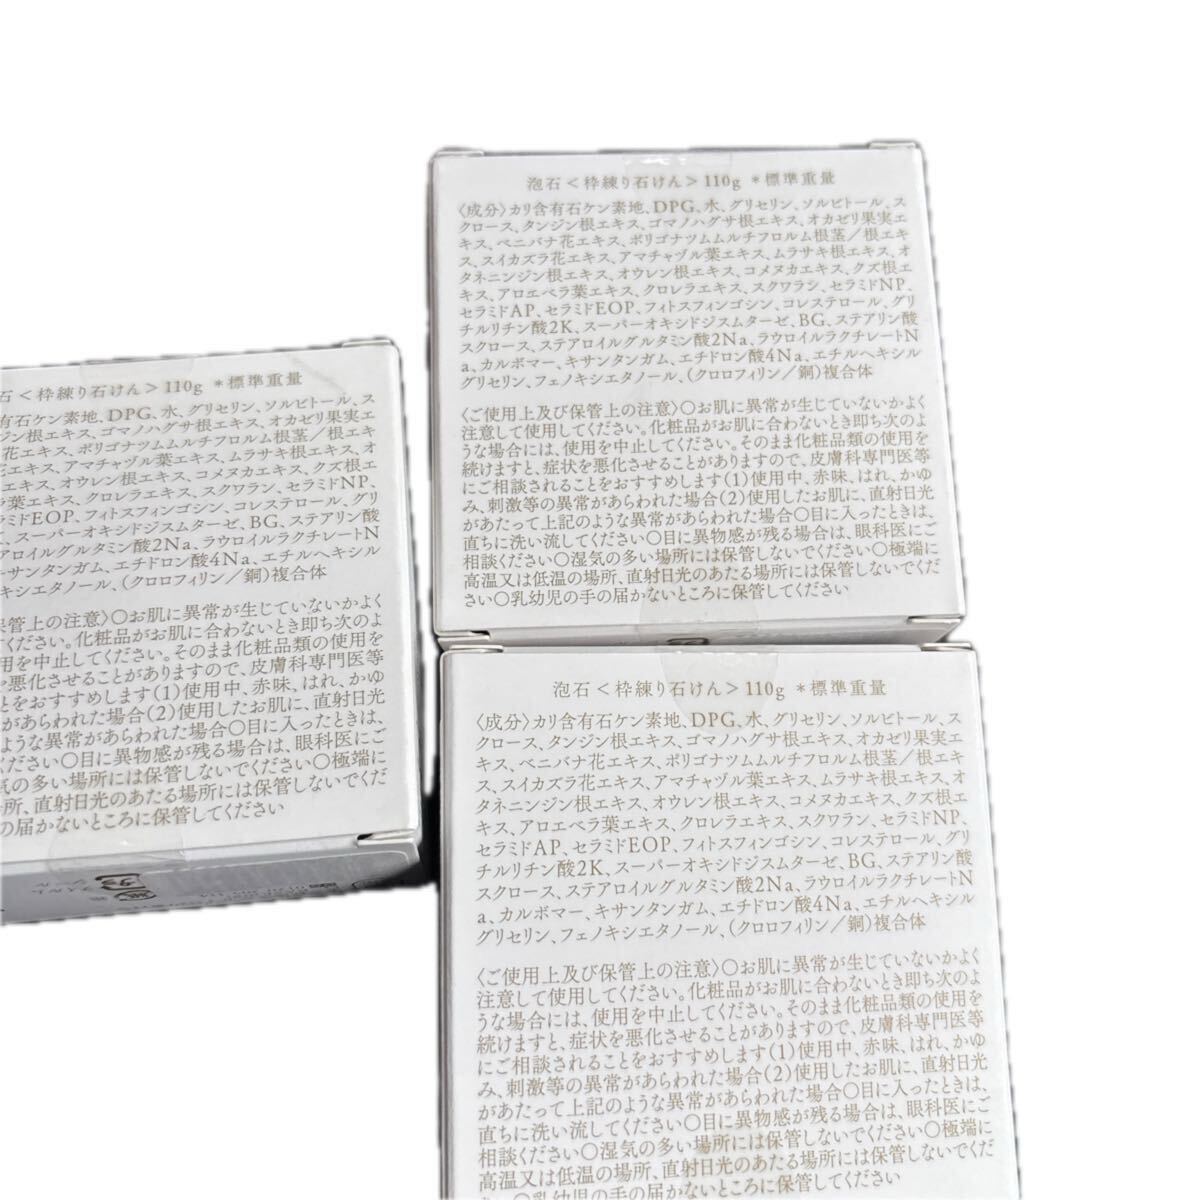 泡石＜枠練り石けん＞110g ＊標準重量
〈成分〉カリ含有石ケン素地、DPG、水、グリセリン、ソルビトール、ス
クロース、タンジン根エキス、ゴマノハグサ根エキス、オカゼリ果実エ
キス、ベニバナ花エキス、ポリゴナツムムルチフロルム根茎／根エキ
ス、スイカズラ花エキス、アマチャヅル葉エキス、ムラサキ根エキス、オ
タネニンジン根エキス、オウレン根エキス、コメヌカエキス、クズ根エ
キス、アロエベラ葉エキス、クロレラエキス、スクワラン、セラミドNP、
セラミドAP、セラミドEOP、フィトスフィンゴシン、コレステロール、グリ
チルリチン酸2K、スーパーオキシドジスムターゼ、BG、ステアリン酸
スクロース、ステアロイルグルタミン酸2Na、ラウロイルラクチレートN
a、カルボマー、キサンタンガム、エチドロン酸4Na、エチルヘキシル
グリセリン、フェノキシエタノール、（クロロフィリン／銅）複合体
〈ご使用上及び保管上の注意〉○お肌に異常が生じていないかよく
注意して使用してください。化粧品がお肌に合わないとき即ち次のよ
うな場合には、使用を中止してください。そのまま化粧品類の使用を
続けますと、症状を悪化させることがありますので、皮膚科専門医等
にご相談されることをおすすめします(1)使用中、赤味、はれ、かゆ
み、刺激等の異常があらわれた場合(2)使用したお肌に、直射日光
があたって上記のような異常があらわれた場合○目に入ったときは、
直ちに洗い流してください○目に異物感が残る場合は、眼科医にご
相談ください○湿気の多い場所には保管しないでください○極端に
高温又は低温の場所、直射日光のあたる場所には保管しないでくだ
さい○乳幼児の手の届かないところに保管してください
石＜枠練り石けん＞110g ＊標準重量
有石ケン素地、DPG、水、グリセリン、ソルビトール、ス
ジン根エキス、ゴマノハグサ根エキス、オカゼリ果実エ
花エキス、ポリゴナツムムルチフロルム根茎／根エキ
花エキス、アマチャヅル葉エキス、ムラサキ根エキス、オ
根エキス、オウレン根エキス、コメヌカエキス、クズ根エ
ラ葉エキス、クロレラエキス、スクワラン、セラミドNP、
ラミドEOP、フィトスフィンゴシン、コレステロール、グリ
、スーパーオキシドジスムターゼ、BG、ステアリン酸
アロイルグルタミン酸2Na、ラウロイルラクチレートN
キサンタンガム、エチドロン酸4Na、エチルヘキシル
キシエタノール、（クロロフィリン／銅）複合体
保管上の注意〉○お肌に異常が生じていないかよく
ください。化粧品がお肌に合わないとき即ち次のよ
用を中止してください。そのまま化粧品類の使用を
を悪化させることがありますので、皮膚科専門医等
とをおすすめします(1)使用中、赤味、はれ、かゆ
があらわれた場合(2)使用したお肌に、直射日光
ような異常があらわれた場合○目に入ったときは、
ください○目に異物感が残る場合は、眼科医にご
気の多い場所には保管しないでください○極端に
所、直射日光のあたる場所には保管しないでくだ
の届かないところに保管してください
泡石＜枠練り石けん＞110g ＊標準重量
〈成分〉カリ含有石ケン素地、DPG、水、グリセリン、ソルビトール、ス
クロース、タンジン根エキス、ゴマノハグサ根エキス、オカゼリ果実エ
キス、ベニバナ花エキス、ポリゴナツムムルチフロルム根茎／根エキ
ス、スイカズラ花エキス、アマチャヅル葉エキス、ムラサキ根エキス、オ
タネニンジン根エキス、オウレン根エキス、コメヌカエキス、クズ根エ
キス、アロエベラ葉エキス、クロレラエキス、スクワラン、セラミドNP、
セラミドAP、セラミドEOP、フィトスフィンゴシン、コレステロール、グリ
チルリチン酸2K、スーパーオキシドジスムターゼ、BG、ステアリン酸
スクロース、ステアロイルグルタミン酸2Na、ラウロイルラクチレートN
a、カルボマー、キサンタンガム、エチドロン酸4Na、エチルヘキシル
グリセリン、フェノキシエタノール、（クロロフィリン／銅）複合体
〈ご使用上及び保管上の注意〉○お肌に異常が生じていないかよく
注意して使用してください。化粧品がお肌に合わないとき即ち次のよ
うな場合には、使用を中止してください。そのまま化粧品類の使用を
続けますと、症状を悪化させることがありますので、皮膚科専門医等
にご相談されることをおすすめします(1)使用中、赤味、はれ、かゆ
み、刺激等の異常があらわれた場合(2)使用したお肌に、直射日光
があたって上記のような異常があらわれた場合○目に入ったときは、
直ちに洗い流してください○目に異物感が残る場合は、眼科医にご
相談ください○湿気の多い場所には保管しないでください○極端に
高温又は低温の場所、直射日光のあたる場所には保管しないでくだ
○乳幼児の手の届かないところに保管してください